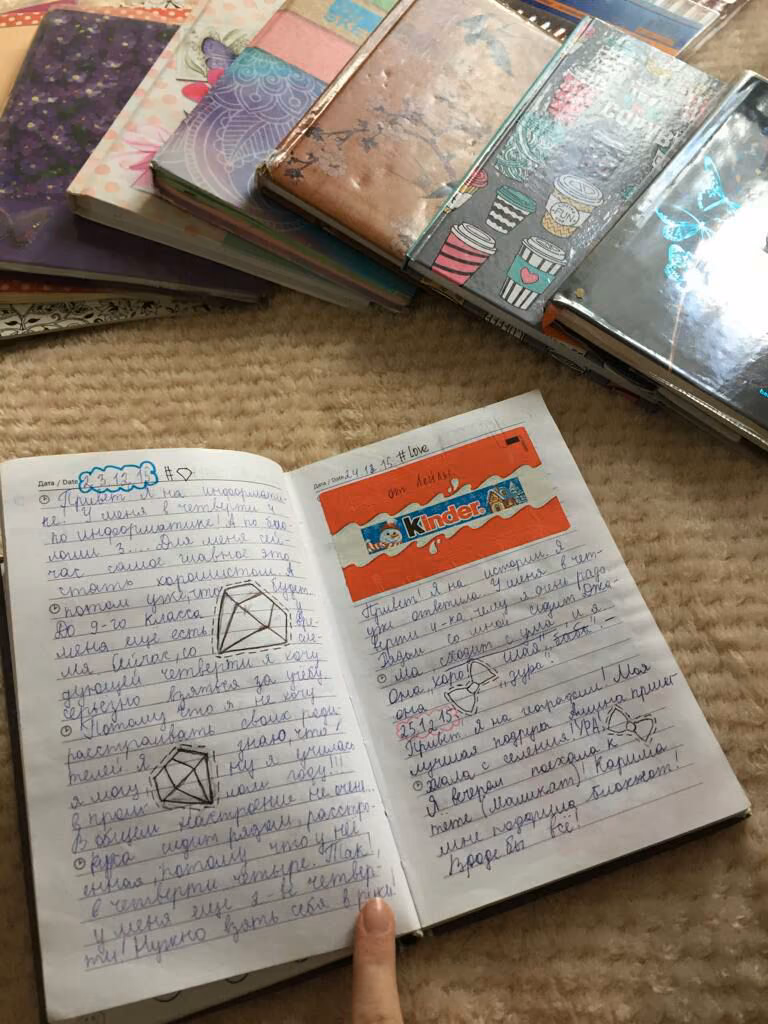 FUN
Дата / Date 23.12.15 #
Привет! Я на информати-
ке! У меня в четверти 4
по информатике! А по био-
логии 3.... Для меня сей-
час самое главное это
стать хорошистом. А
потом уже, что будет.
До 9-го класса у
меня еще есть вре-
мя. Сейчас, со сле-
дующей четверти я хочу
серьезно взяться за учёбу.
Потому что я не хочу
расстраивать своих роди-
телей. Я знаю, что
я могу! Ну я училась
в прош лом году!!!
В общем настроение не очень..
сидит рядом, расстро-
енная, потому что у неё
в четверти четыре. Так,
у меня еще 2-е четвер-
ти! Нужно взять себя в руки!
Дата / Date 24.12.15 #Love
от Лейлы
Kinder.
Привет! Я на истории. Я
уже ответила. У меня в чет-
верти 4-ка, чему я очень рада.
Рядом со мной сидит Джа-
ма. сходит с ума, и я.
Она „хоро шая", „баба" –
она „дура"
25.12.15
Привет я на географии! Моя
лучшая подруга Амина приез
жала с селения! УРА!
Я вечером поехала к
тёте (Маликат)! Карина
мне подарила блокнот!
Вроде бы всё!